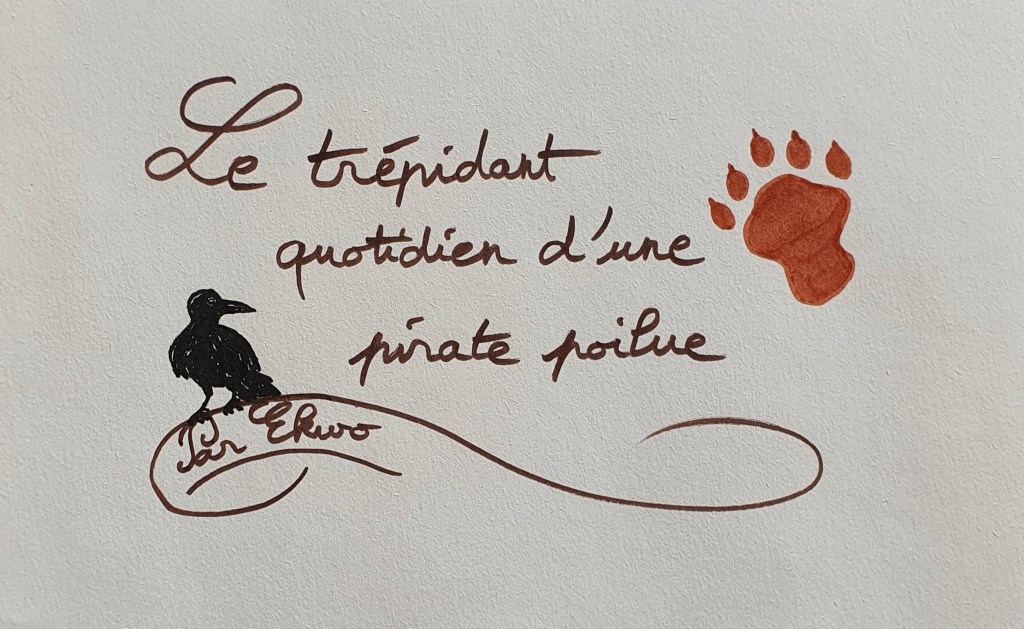 Le trépidant
quotidien d'une
pirate poilue
Par Ekwo